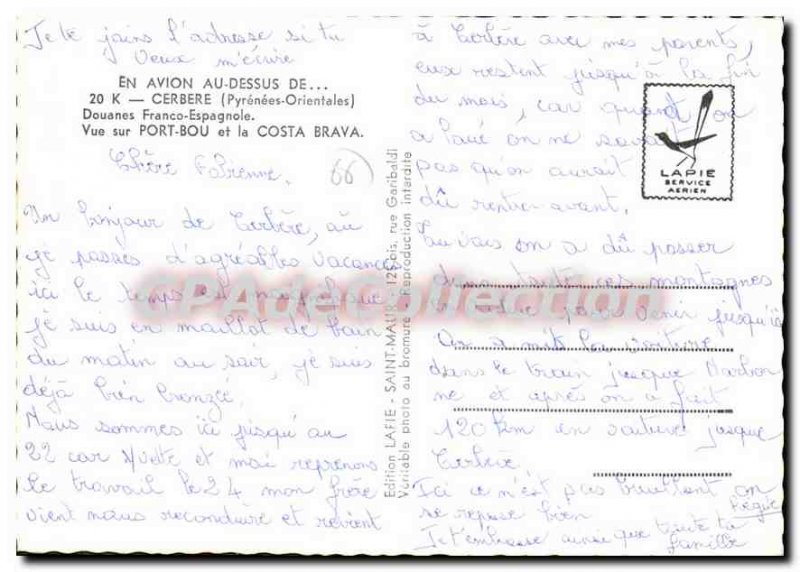 Je te joins l'adresse si tu
veux m'écrire
EN AVION AU-DESSUS DE...
20 K — CERBERE (Pyrénées-Orientales)
Douanes Franco-Espagnole.
Vue sur PORT-BOU et la COSTA BRAVA.
Chère Fabienne,
66
Un bonjour de Cerbère, où
je passes d'agréables vacances
ici le temps est magnifique
je suis en maillot de bain
du matin au soir, je suis
déjà bien bronzée.
Nous sommes ici jusqu'au
22 car Yvette et moi reprenons
le travail le 24 mon frère
vient nous reconduire et revient
Edition LAPIE - SAINT-MAUR - 125 bis, rue Garibaldi
Véritable photo au bromure - Reproduction interdite
à Cerbère avec mes parents,
eux restent jusqu'à la fin
du mois, car quand on
a loué on ne savait
pas qu'on aurait
dû rentrer avant.
on a dû passer
dans toute ces montagnes
pour venir jusqu'ici
On a mits la voiture
dans le train jusque Narbon
ne et après on a fait
120 km en voiture jusque
Cerbère.
Ici ce n'est pas bruillant on
se repose bien
Je t'embrasse ainsi que toute ta
famille
LAPIE
SERVICE
AERIEN
CPAdeCollection